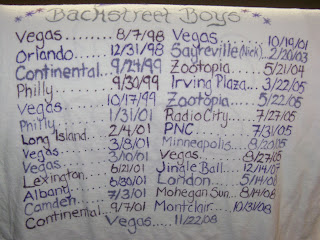 Backstreet Boys
Vegas........8/7/98
Orlando......12/31/98
Continental..9/24/99
Philly.......9/30/99
Vegas........10/17/99
Philly.......1/31/01
Long Island..2/4/01
Vegas........3/8/01
Vegas........3/10/01
Vegas........6/21/01
Lexington....6/30/01
Albany.......7/3/01
Camden.......9/7/01
Continental
Vegas........10/19/01
Sayreville(Nick)..2/20/03
Zootopia.....5/21/04
Irving Plaza..3/22/05
Zootopia.....5/22/05
Radio City...7/27/05
PNC..........7/31/05
Minneapolis..8/20/05
Vegas........8/27/05
Jingle Ball..12/14/07
London.......5/14/08
Mohegan Sun..8/14/08
Montclair....10/31/08
Vegas.....11/22/08